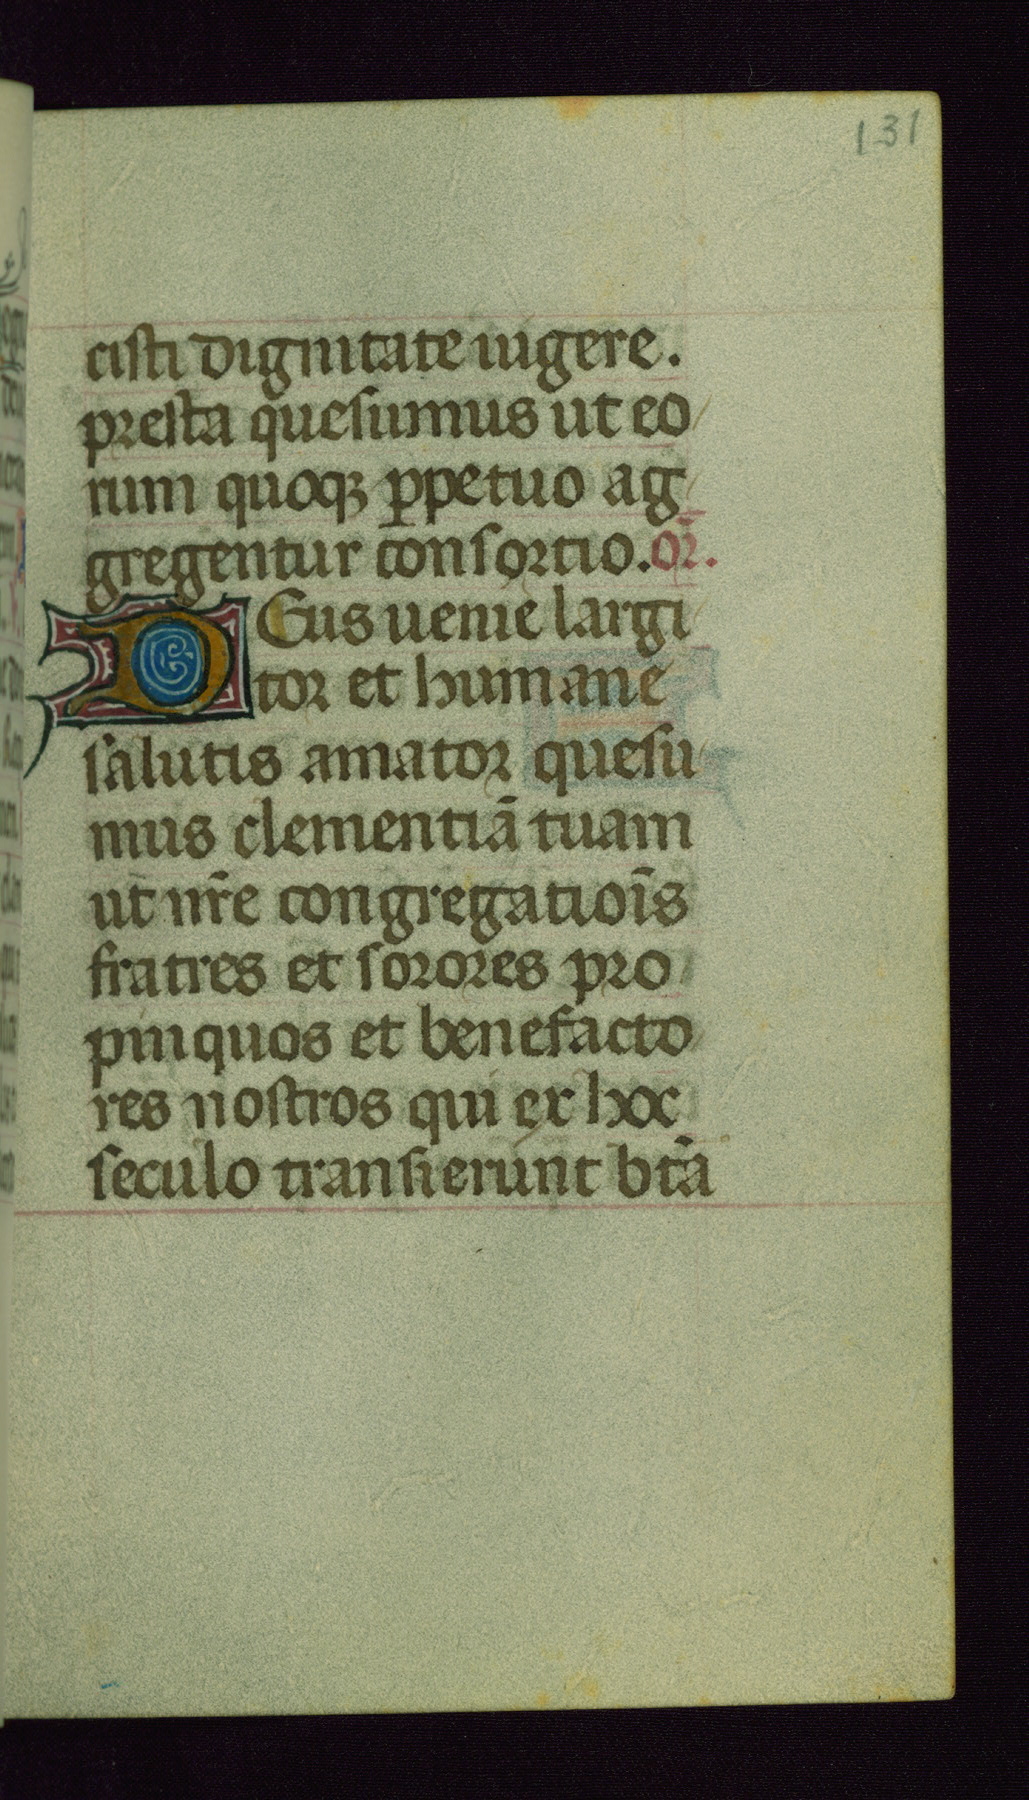 131
cisti dignitate iugere.
presta quesumus ut eo
rum quoqꝫ ꝑpetuo ag
gregentur consortio. or̄.
DEus uenie largi
tor et humane
salutis amator quesu
mus clementiā tuam
ut nr̄e congregatiōis
fratres et sorores pro
pinquos et benefacto
res nostros qui ex hoc
seculo transierunt btā